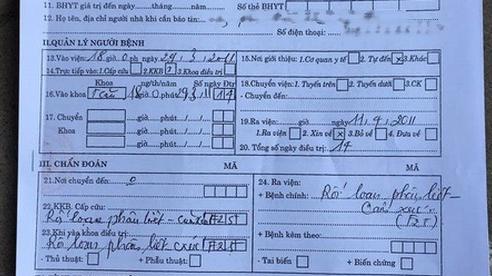 11. BHYT giá trị đến ngày......tháng......năm...... Số thẻ BHYT
12. Họ tên, địa chỉ người nhà khi cần báo tin:
Số điện thoại:
II.QUẢN LÝ NGƯỜI BỆNH
13.Vào viện: 18 giờ 0 ph ngày 29/3/2011
15.Nơi giới thiệu: 1.Cơ quan y tế 2. Tự đến x 3.Khác
14.Trực tiếp vào: 1.Cấp cứu 2.KKB 2 3.Khoa điều trị
Khoa ng/th/năm Số ngày Đtr
18.Chuyển viện: 1.Tuyến trên 2.Tuyến dưới 3.CK
16.Vào khoa 18 giờ 0 29/3/11 14
- Chuyển đến:
17. Chuyển giờ phút / /
Khoa giờ phút / /
giờ phút / /
19.Ra viện: giờ ngày 11/4/2011
1.Ra viện 2. Xin về x 3.Bỏ về 4. Đưa về
20. Tổng số ngày điều trị: 14
III. CHẨN ĐOÁN MÃ MÃ
21.Nơi chuyển đến: 0
22.KKB. Cấp cứu:
Rối loạn phân liệt - cảm xúc F25
23.Khi vào khoa điều trị
Rối loạn phân liệt cxúc F25
- Thủ thuật: + Phẫu thuật:
24. Ra viện:
+ Bệnh chính: Rối loạn phân liệt -
Cảm xúc
(F25)
+ Bệnh kèm theo:
- Tai biến + Biến chứng